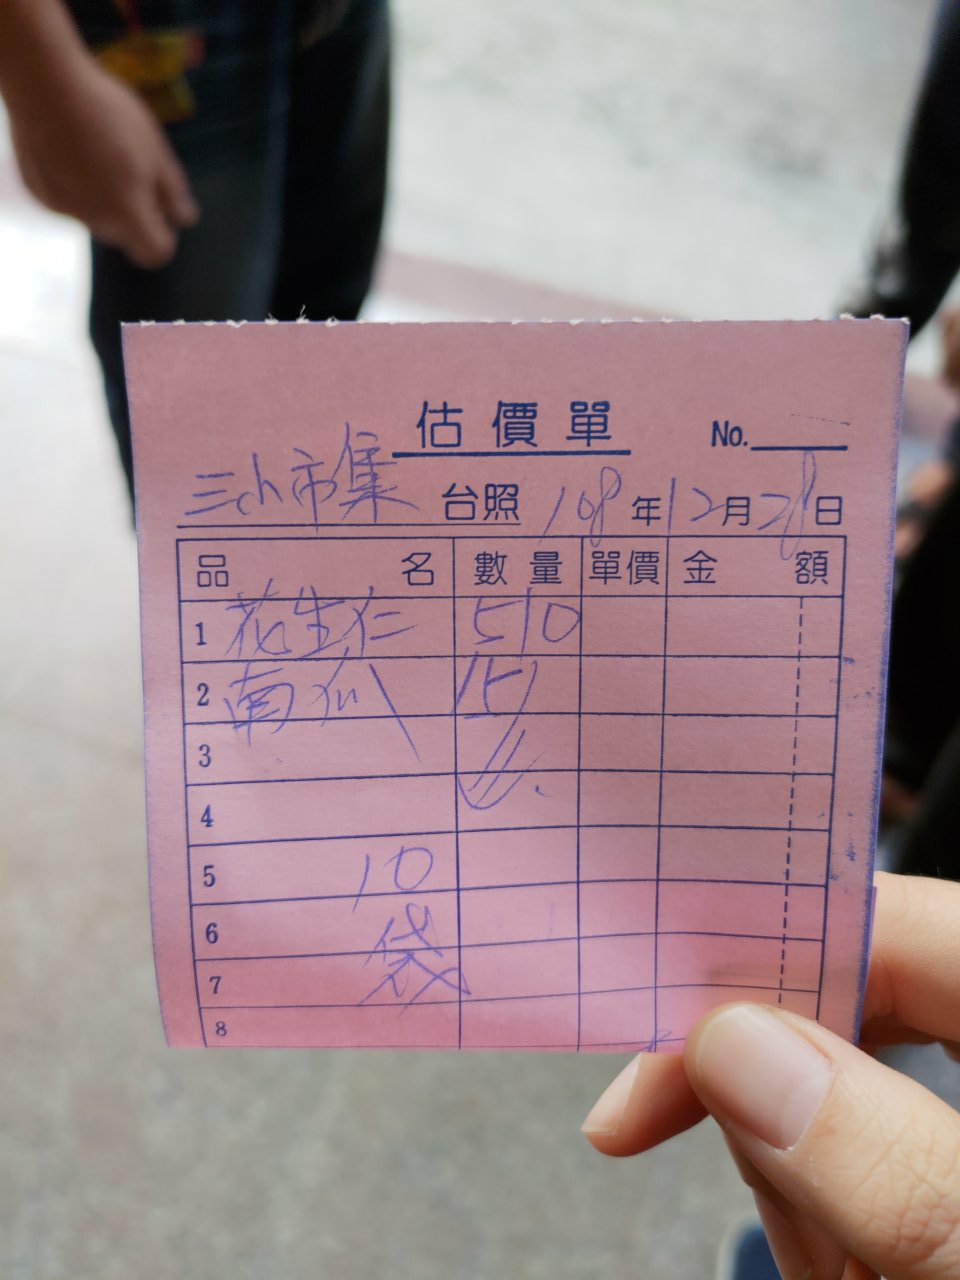 估價單 No.
三小市集 台照 108年12月28日
品名 數量 單價 金額
1 花生仁 510
2 南瓜
3
4
5 10
6 袋
7
8